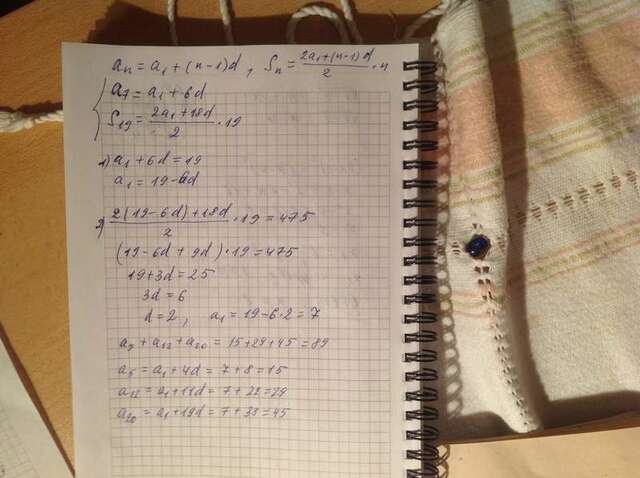 aₙ = a₁ + (n-1)d, Sₙ = (2a₁+(n-1)d)/2 · n
a₇ = a₁ + 6d
S₁₉ = (2a₁+18d)/2 · 19
1) a₁ + 6d = 19
a₁ = 19-6d
2) (2(19-6d)+18d)/2 · 19 = 475
(19-6d + 9d) · 19 = 475
19+3d = 25
3d = 6
d = 2, a₁ = 19-6·2 = 7
a₅ + a₁₂ + a₂₀ = 15+29+45 = 89
a₅ = a₁ + 4d = 7 + 8 = 15
a₁₂ = a₁ + 11d = 7 + 22 = 29
a₂₀ = a₁ + 19d = 7 + 38 = 45